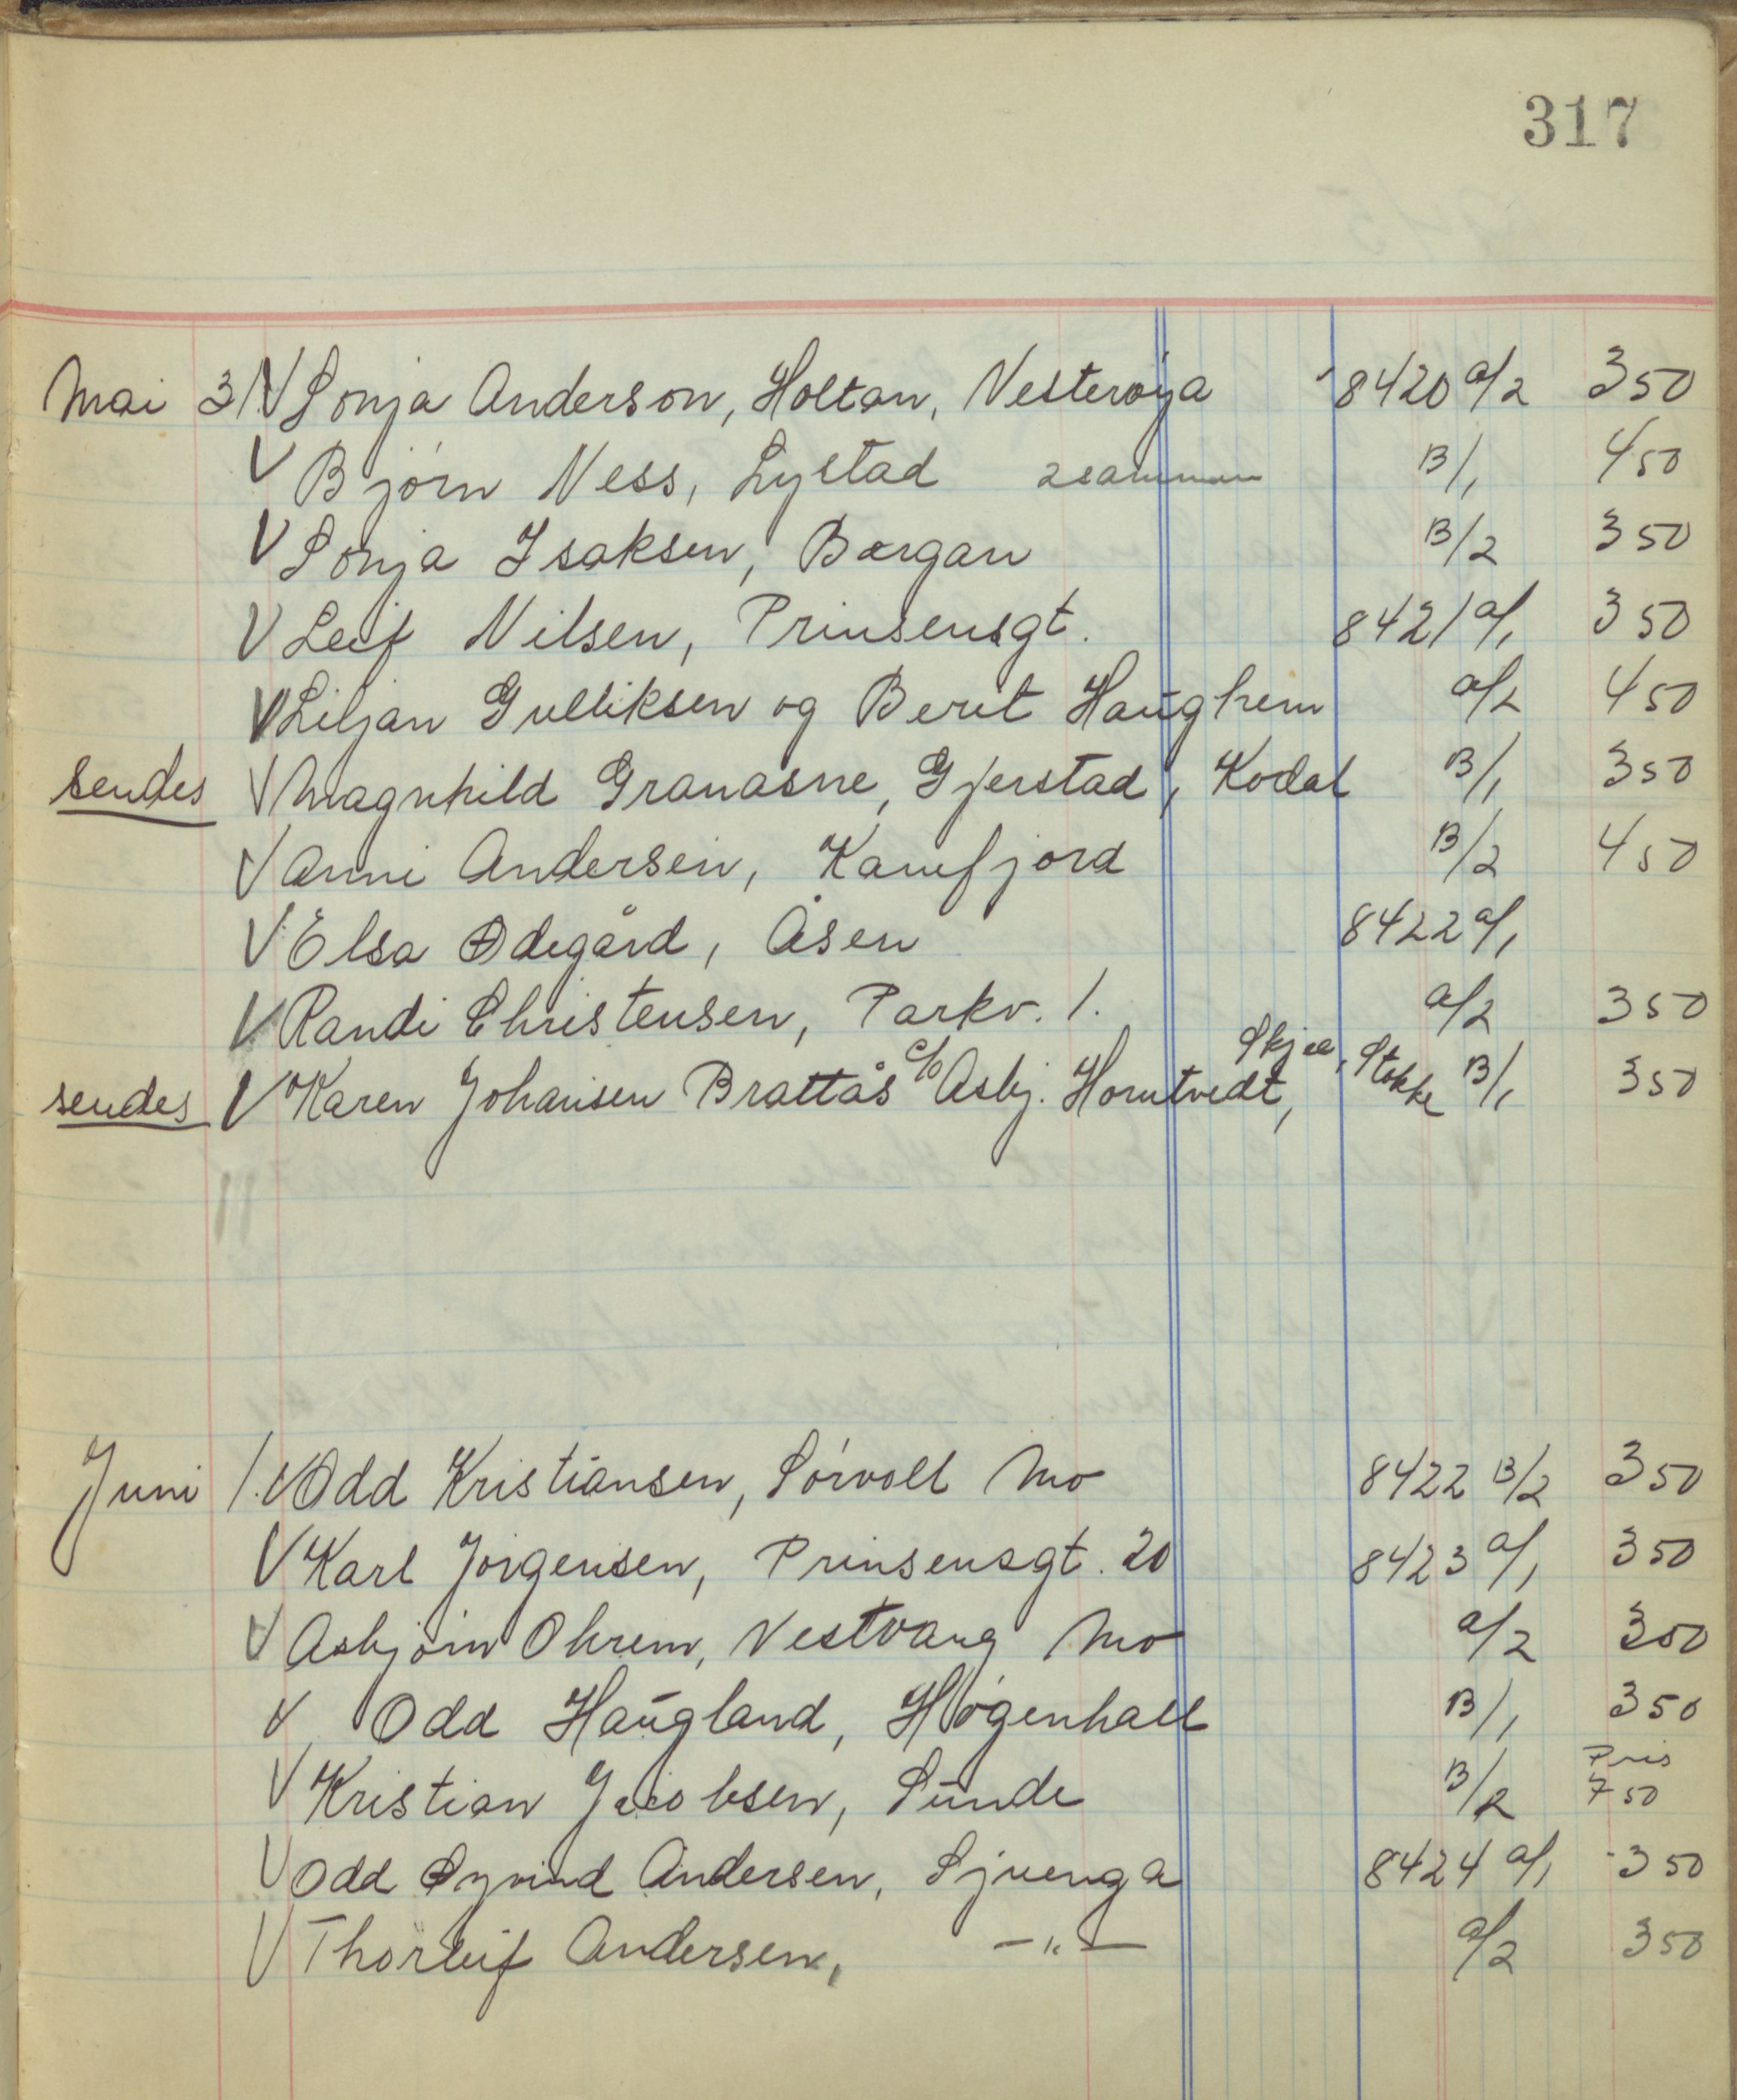 317
Mai 31. V Sonja Anderson, Holtan, Vesterøya 8420 a/2 350
V Bjørn Ness, Lystad 2 sammen B/1 450
V Sonja Isaksen, Bærgan B/2 350
V Leif Nilsen, Prinsensgt. 8421 a/1 350
V Liljan Gulliksen og Berit Haughem a/2 450
sendes V Magnhild Granasne, Gjerstad, Kodal B/1 350
V Anni Andersen, Kamfjord B/2 450
V Elsa Ødegård, Åsen 8422 a/1
V Randi Christensen, Parkv. 1. a/2 350
sendes V Karen Johansen Brattås c/o Asbj. Horntvedt, Skjee, Stokke B/1 350
Juni 1. V Odd Kristiansen, Sørvoll Mo 8422 B/2 350
V Karl Jørgensen, Prinsensgt. 20 8423 a/1 350
V Asbjørn Ohrem, Vestvang Mo a/2 350
V Odd Haugland, Høgenhall B/1 350
V Kristian Jacobsen, Sunde B/2 Pris 750
V Odd Øyvind Andersen, Sjuenga 8424 a/1 350
V Thorleif Andersen, —"— a/2 350